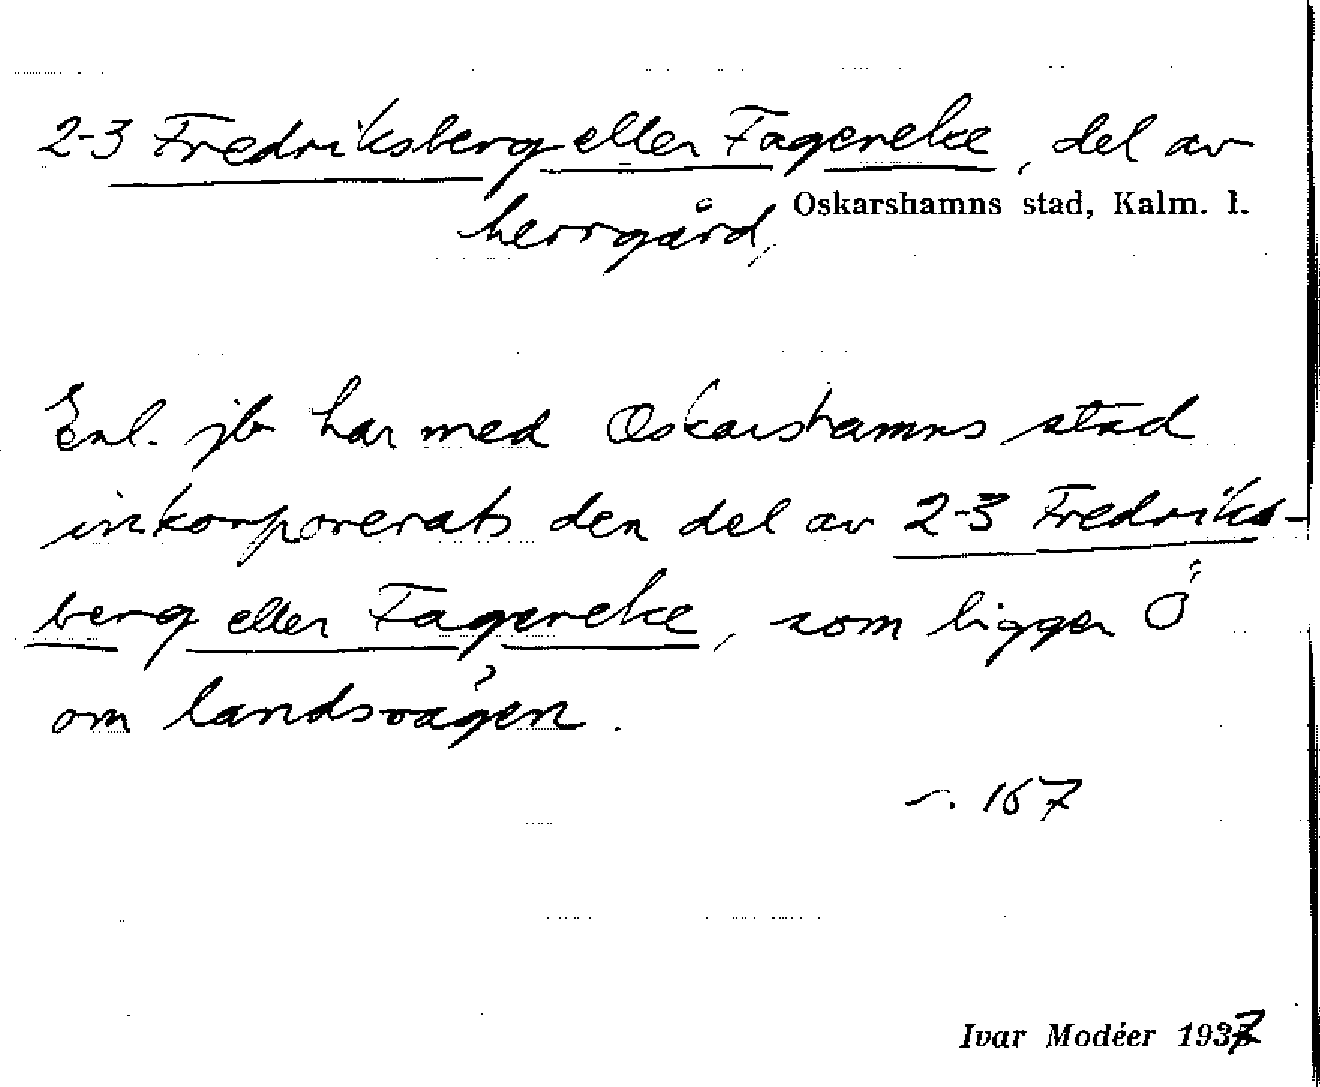 2-3 Fredriksberg eller Fagereke, del av
herrgård, Oskarshamns stad, Kalm. l.
Enl. jb har med Oskarshamns stad
inkorporerats den del av 2-3 Fredriks-
berg eller Fagereke, som ligger Ö
om landsvägen.
s. 167
Ivar Modéer 1937